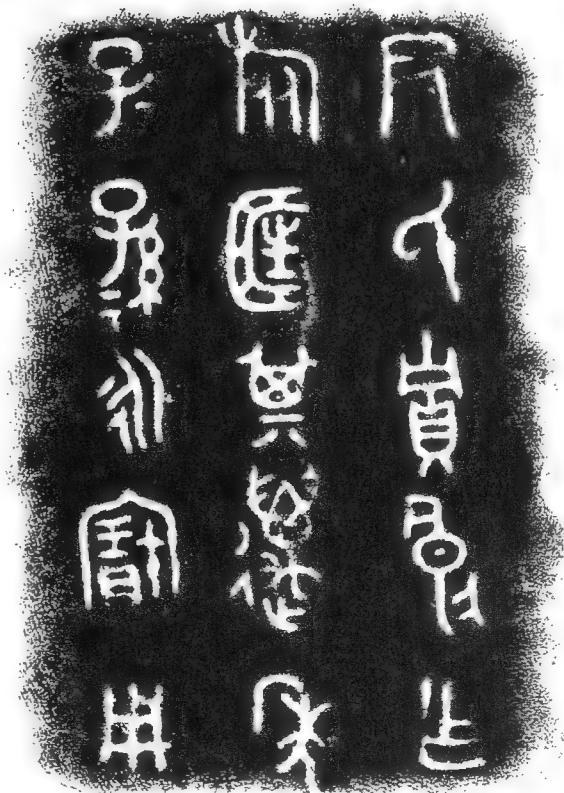 尹氏貴良乍
旅匡其邁年
子孫永寶用